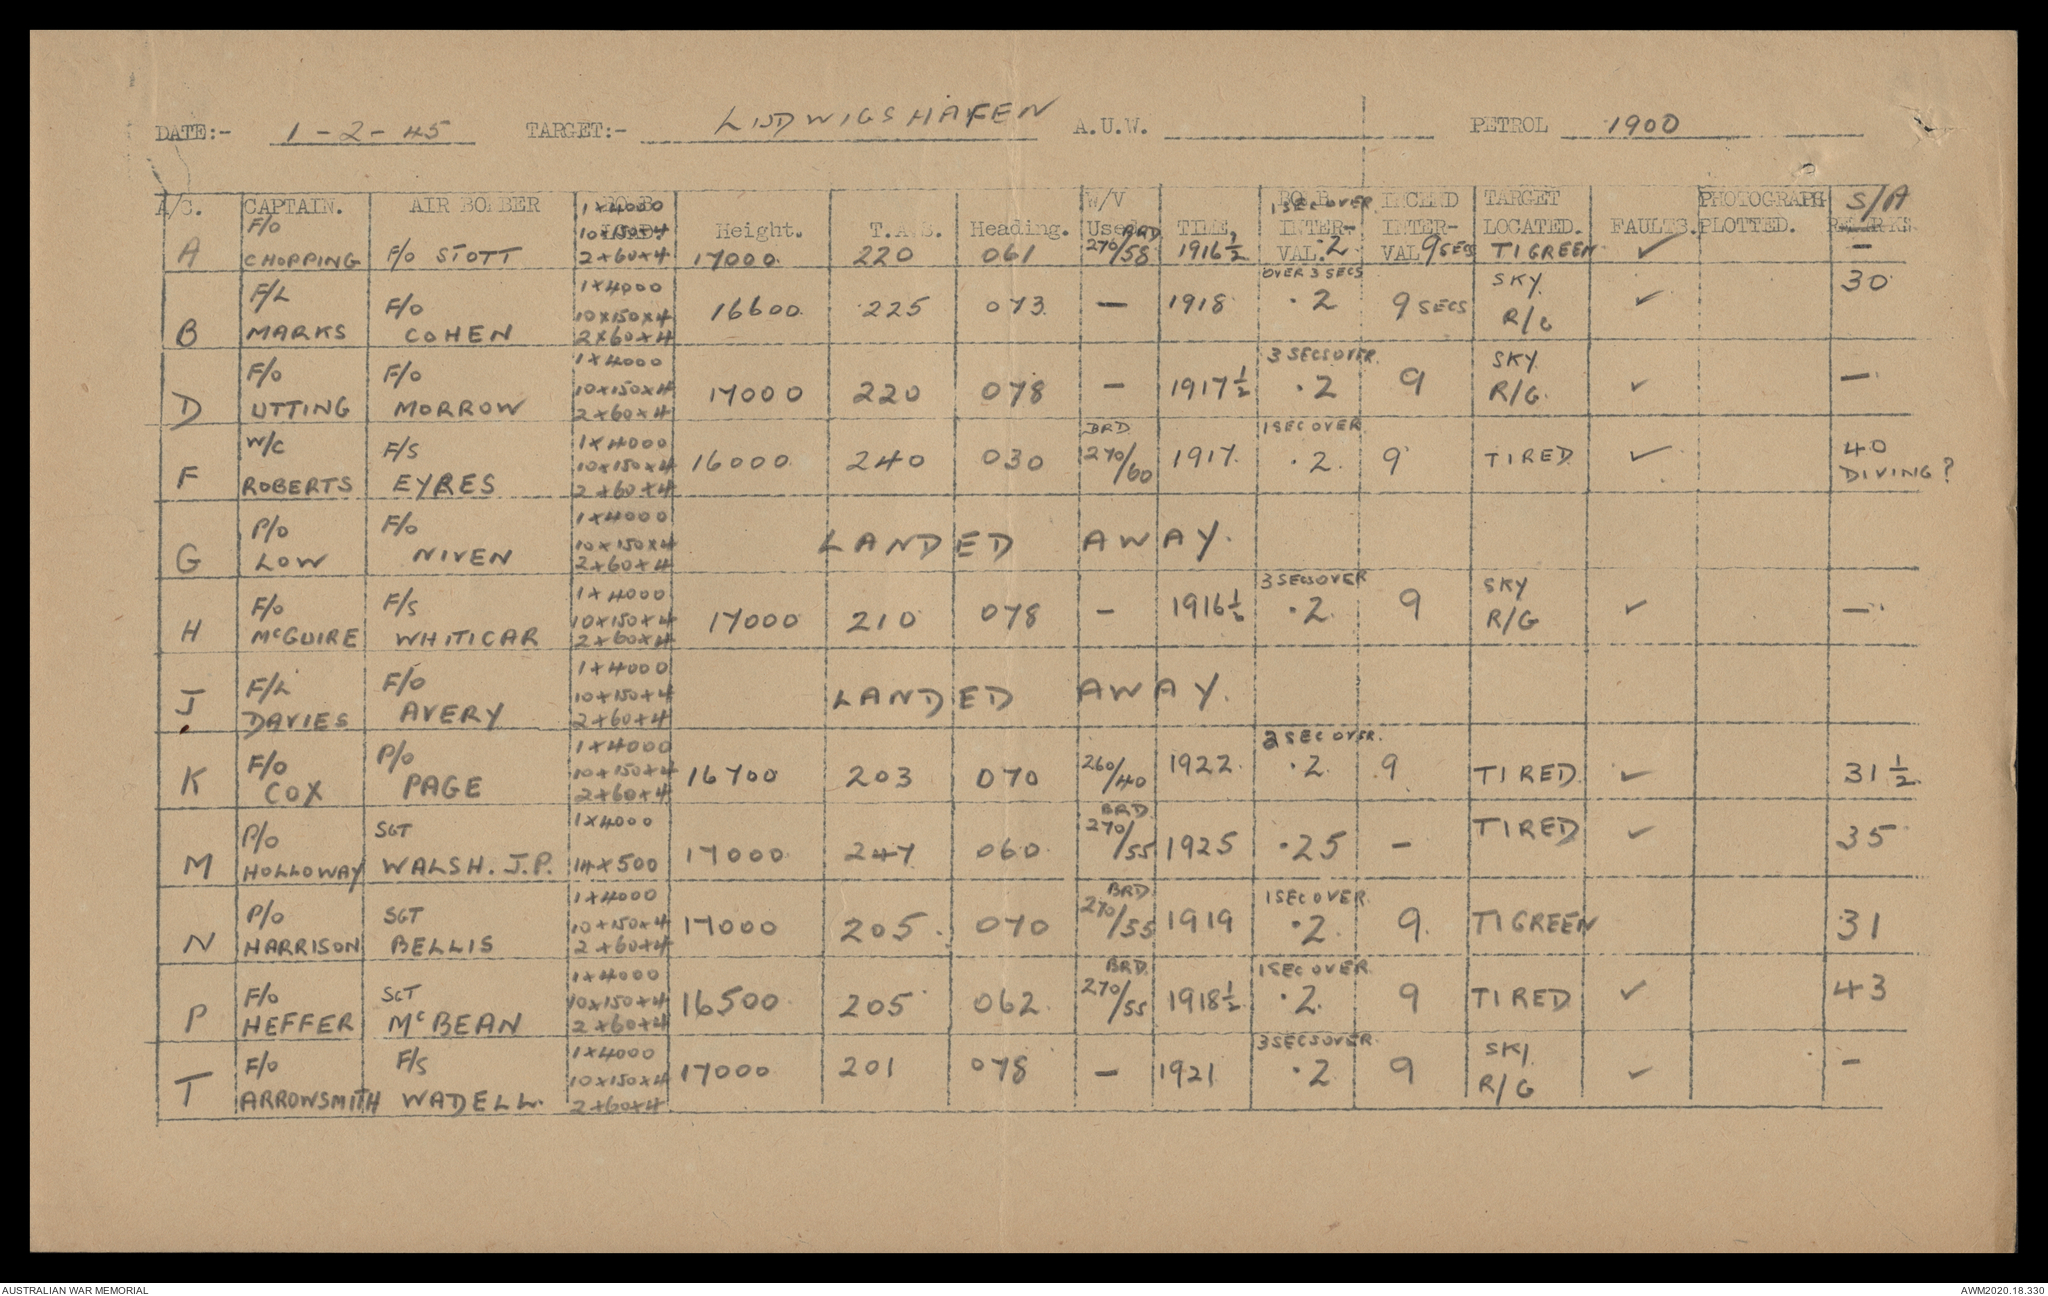 DATE:- 1-2-45 TARGET:- LUDWIGSHAFEN A.U.W. PETROL 1900
A/C. CAPTAIN. AIR BOMBER BOMB LOAD. Height. T.A.S. Heading. W/V Used. TIME. BOMB INTER-VAL. INCEND INTER-VAL TARGET LOCATED. FAULTS. PHOTOGRAPH PLOTTED. S/A REMARKS
A F/O CHOPPING F/O STOTT 1x4000 10x150x4 2x60x4 17000 220 061 BRD 270/58 1916½ 1 SEC OVER .2 9 SECS TI GREEN ✓ —
B F/L MARKS F/O COHEN 1x4000 10x150x4 2x60x4 16600 225 073 — 1918 OVER 3 SECS .2 9 SECS SKY R/G ✓ 30
D F/O UTTING F/O MORROW 1x4000 10x150x4 2x60x4 17000 220 078 — 1917½ 3 SECS OVER. .2 9 SKY R/G. ✓ —
F W/C ROBERTS F/S EYRES 1x4000 10x150x4 2x60x4 16000 240 030 BRD 270/60 1917 1 SEC OVER .2 9 TI RED ✓ 40 DIVING?
G P/O LOW F/O NIVEN 1x4000 10x150x4 2x60x4 LANDED AWAY.
H F/O McGUIRE F/S WHITICAR 1x4000 10x150x4 2x60x4 17000 210 078 — 1916½ 3 SECS OVER .2 9 SKY R/G ✓ —
J F/L DAVIES F/O AVERY 1x4000 10x150x4 2x60x4 LANDED AWAY.
K F/O COX P/O PAGE 1x4000 10x150x4 2x60x4 16700 203 070 260/40 1922 2 SEC OVER. .2 9 TI RED ✓ 31½
M P/O HOLLOWAY SGT WALSH. J.P. 1x4000 14x500 17000 247 060 BRD 270/55 1925 .25 — TI RED ✓ 35
N P/O HARRISON SGT BELLIS 1x4000 10x150x4 2x60x4 17000 205 070 BRD 270/55 1919 1 SEC OVER .2 9. TI GREEN 31
P F/O HEFFER SGT McBEAN 1x4000 10x150x4 2x60x4 16500 205 062 BRD 270/55 1918½ 1 SEC OVER .2 9 TI RED ✓ 43
T F/O ARROWSMITH F/S WADELL. 1x4000 10x150x4 2x60x4 17000 201 078 — 1921 3 SECS OVER .2 9 SKY R/G ✓ —
AUSTRALIAN WAR MEMORIAL AWM2020.18.330